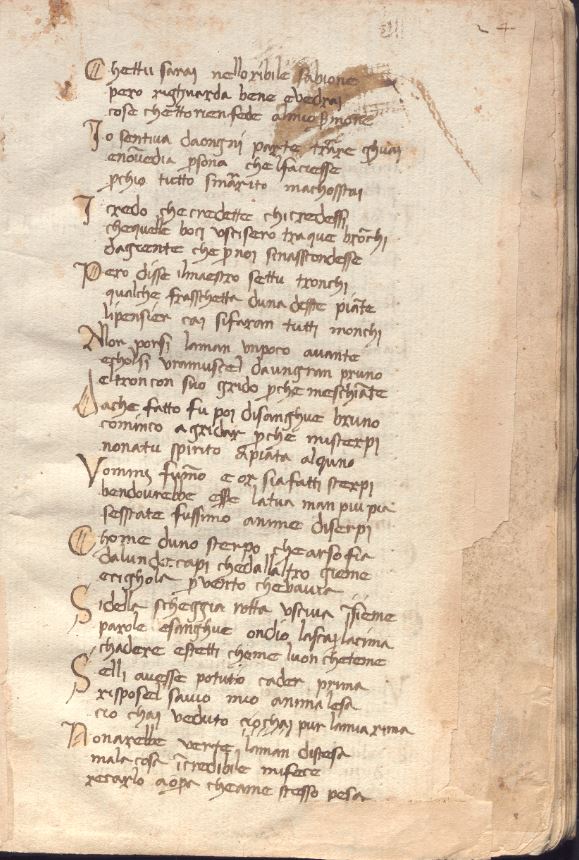 Chettu sarai nelloribile sabione
pero righuarda bene evedrai
cose chettorrien fede almio smone
Io sentiva daongni parte trare ghuai
enonvedia psona che lfaciesse
pchio tutto smarito machosstai
I credo checredette chicredessi
chequelle boci uscisero traque bronchi
dagiente che pnoi sinasscondesse
Pero disse ilmaestro settu tronchi
qualche fraschetta duna desse piante
lipensier cai sifaram tutti monchi
Allor porsi laman unpoco avante
egholsi vramuscel daungran pruno
eltroncon suo grido pche meschiante
Dache fatto fu poi disanghue bruno
cominco agridar pche misterpi
nonatu spirito dpiata alquno
Vomini fumo e or siafatti sterpi
bendovrebbe esse latua man piu pia
sesstate fussimo anime diserpi
Chome duno sterpo chearso sia
dalunde capi chedallaltro gieme
ecighola pvento cheva via
Sidella scheggia rotta usciva isieme
parole esanghue ondio lasciai lacima
chadere estetti chome luon cheteme
Selli avesse potuto cader prima
risposel savio mio anima lesa
cio chai veduto pur lamia rima
Nonarebbe verte laman distesa
mala cosa icredibile mifece
recarlo aopa cheame stesso pesa